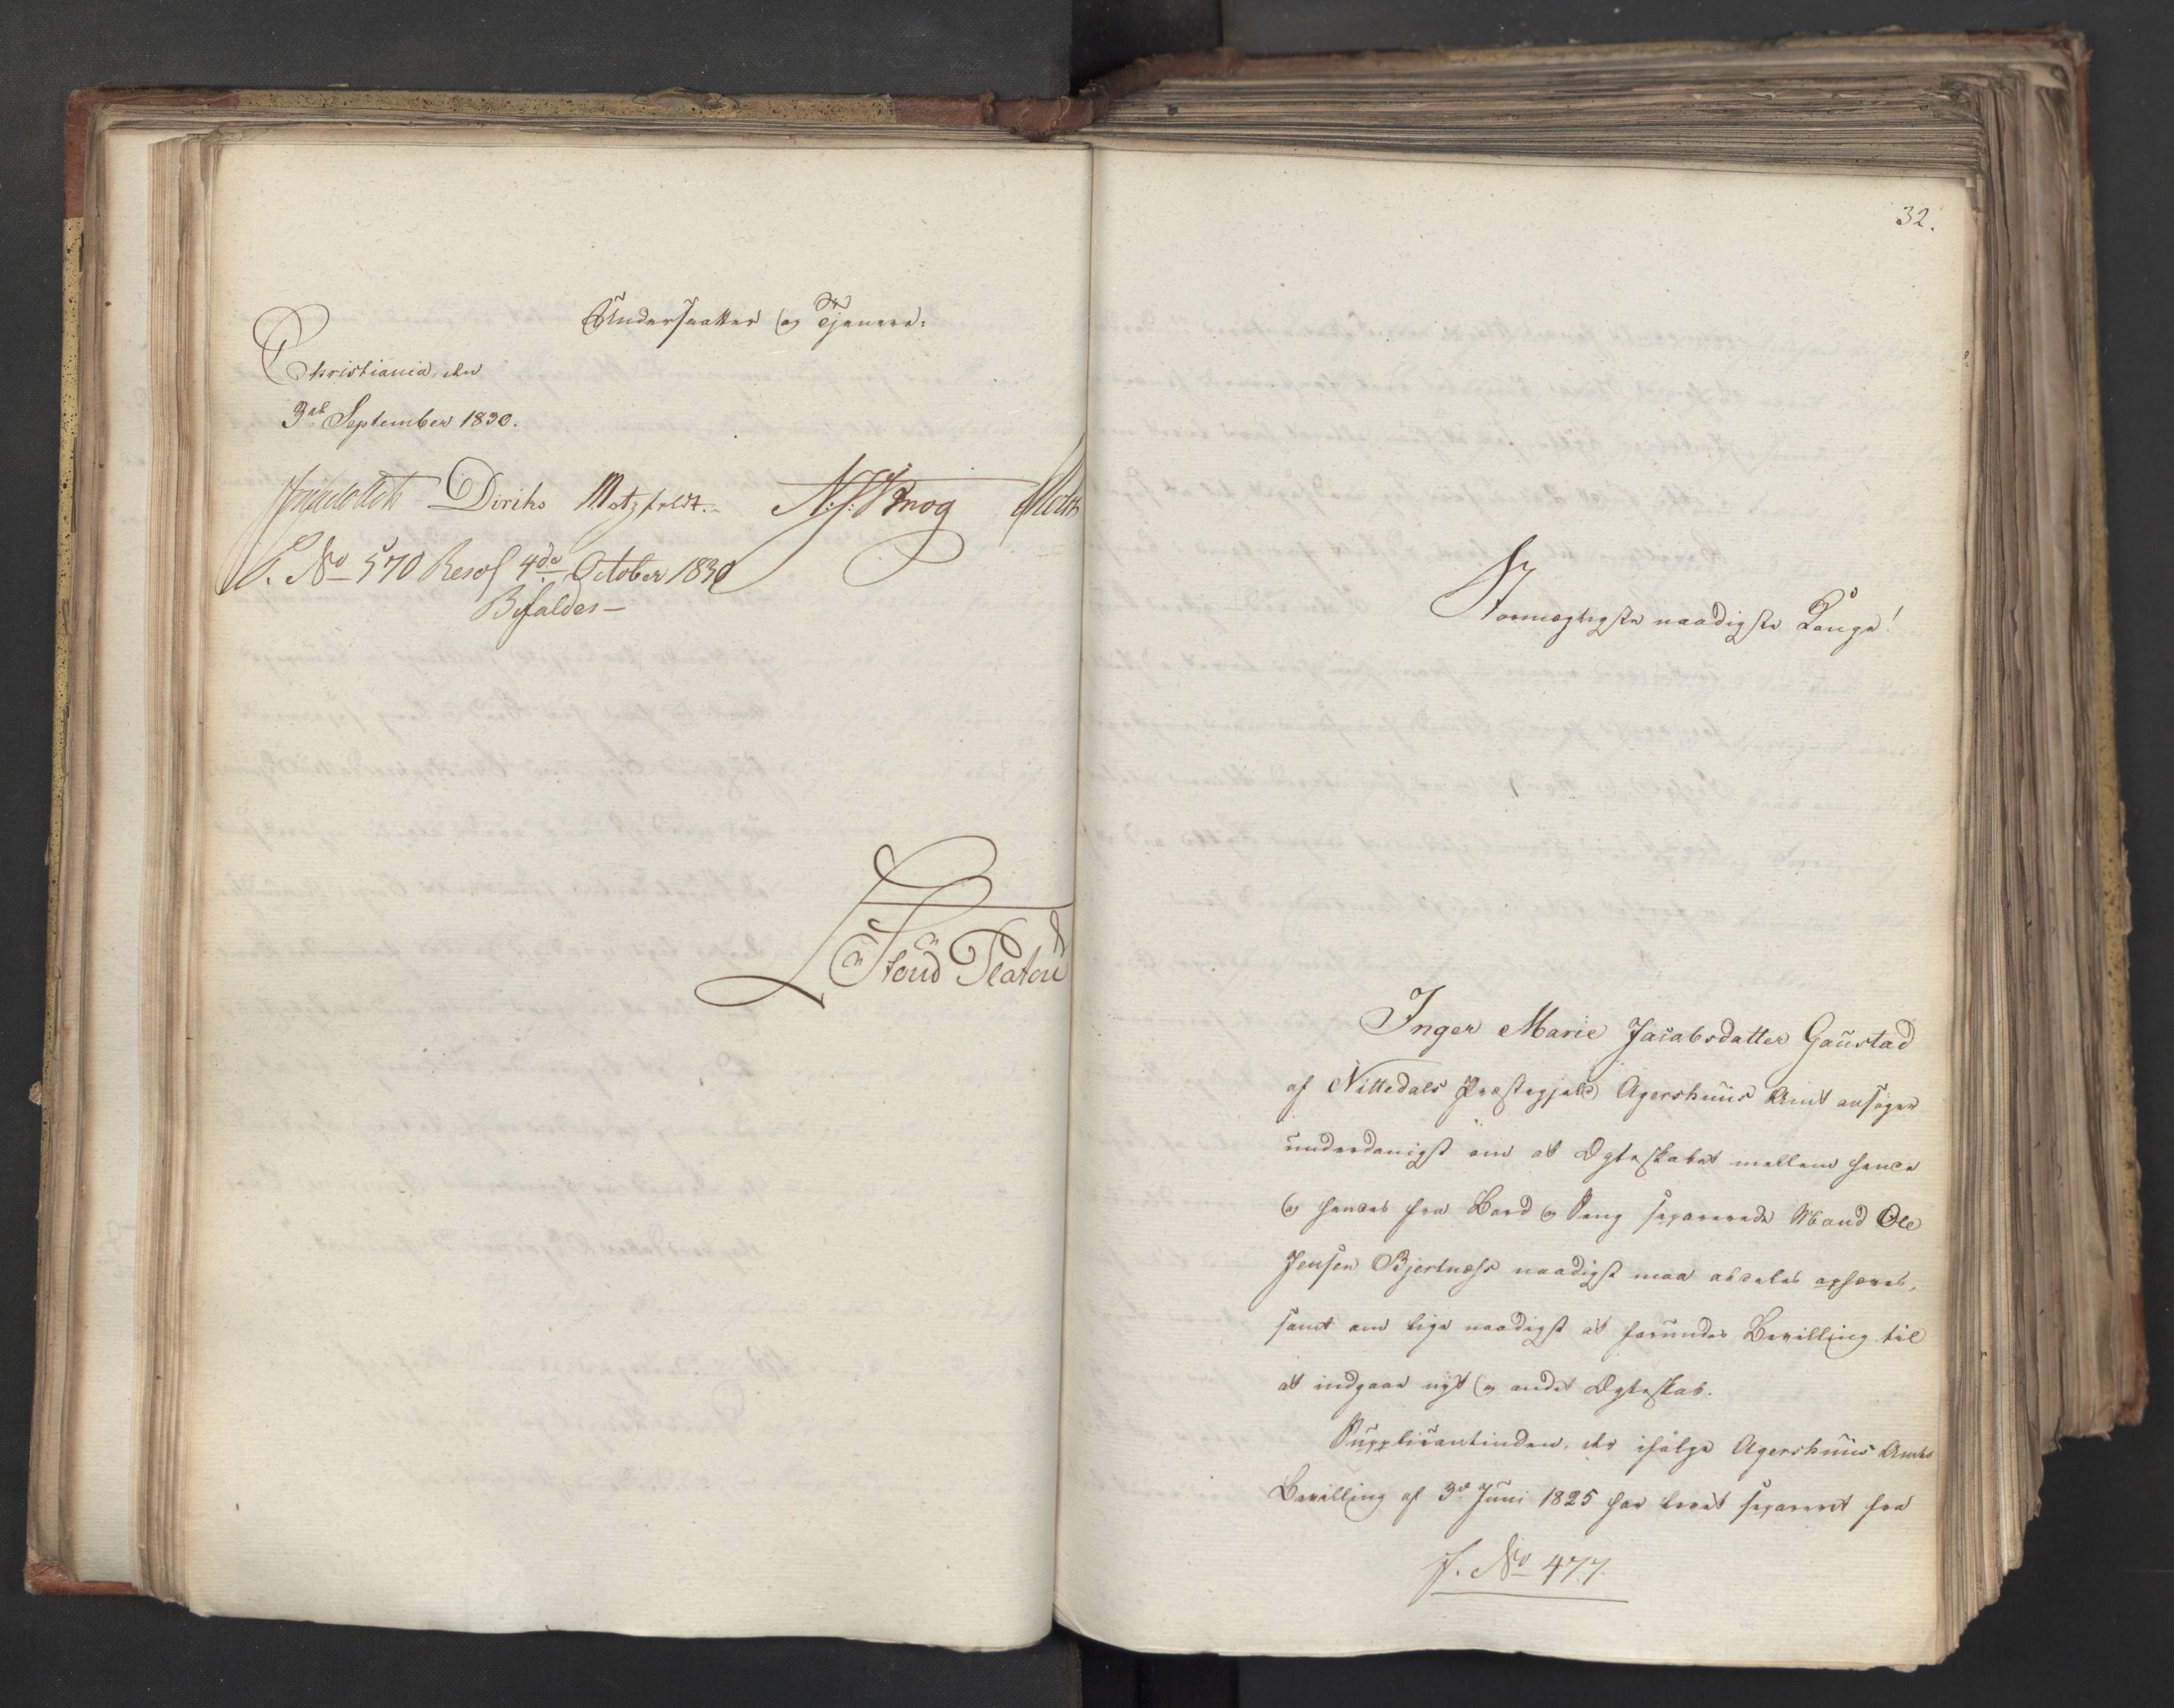 Undersaatter og Tjenere:
Christiania, den
3de September 1830.
Diriks Motzfeldt. N: J: Krog
P. No 570 Resol 4de October 1830
Bifaldes—
Stoud Platou
32.
Stormægtigste naadigste Konge!
Inger Marie Jacobsdatter Gaustad
af Nittedals Præstegjeld Agershuus Amt ansøger
underdanigst om at Ægteskabet mellem hende
og hendes fra Bord og Seng separerede Mand Ole
Jensen Bjertness naadigst maa aldeles ophæves,
samt om lige naadigst at forundes Bevilling til
at indgaae nyt og andet Ægteskab.
Supplicantinden, der ifølge Agershuus Amts
Bevilling af 3de Juni 1825 har levet separeret fra
J. No 477.